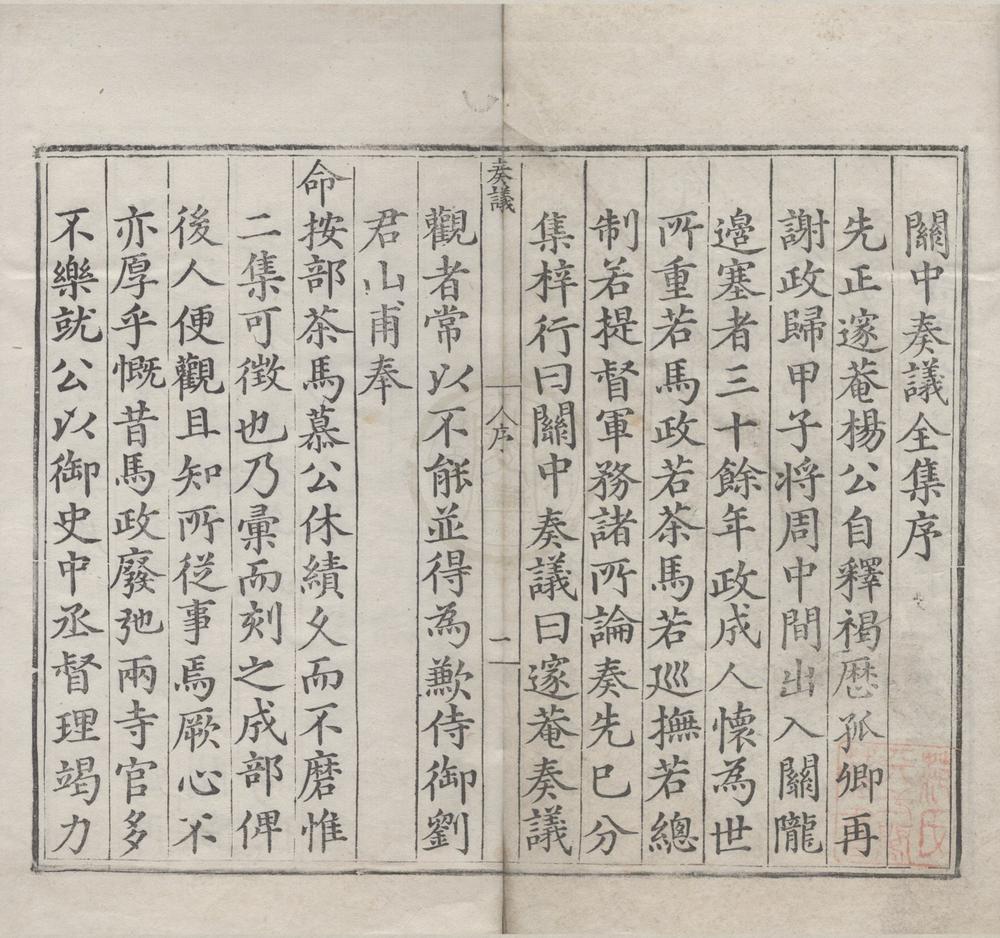 關中奏議全集序
先正邃菴楊公自釋褐歷孤卿再
謝政歸甲子將周中間出入關隴
邊塞者三十餘年政成人懷為世
所重若馬政若茶馬若巡撫若總
制若提督軍務諸所論奏先巳分
集梓行曰關中奏議曰邃菴奏議
奏議
序
一
觀者常以不能並得為歉侍御劉
君山甫奉
命按部茶馬慕公休績久而不磨惟
二集可徴也乃彙而刻之成部俾
後人便觀且知所從事焉厥心不
亦厚乎慨昔馬政廢弛兩寺官多
不樂就公以御史中丞督理竭力